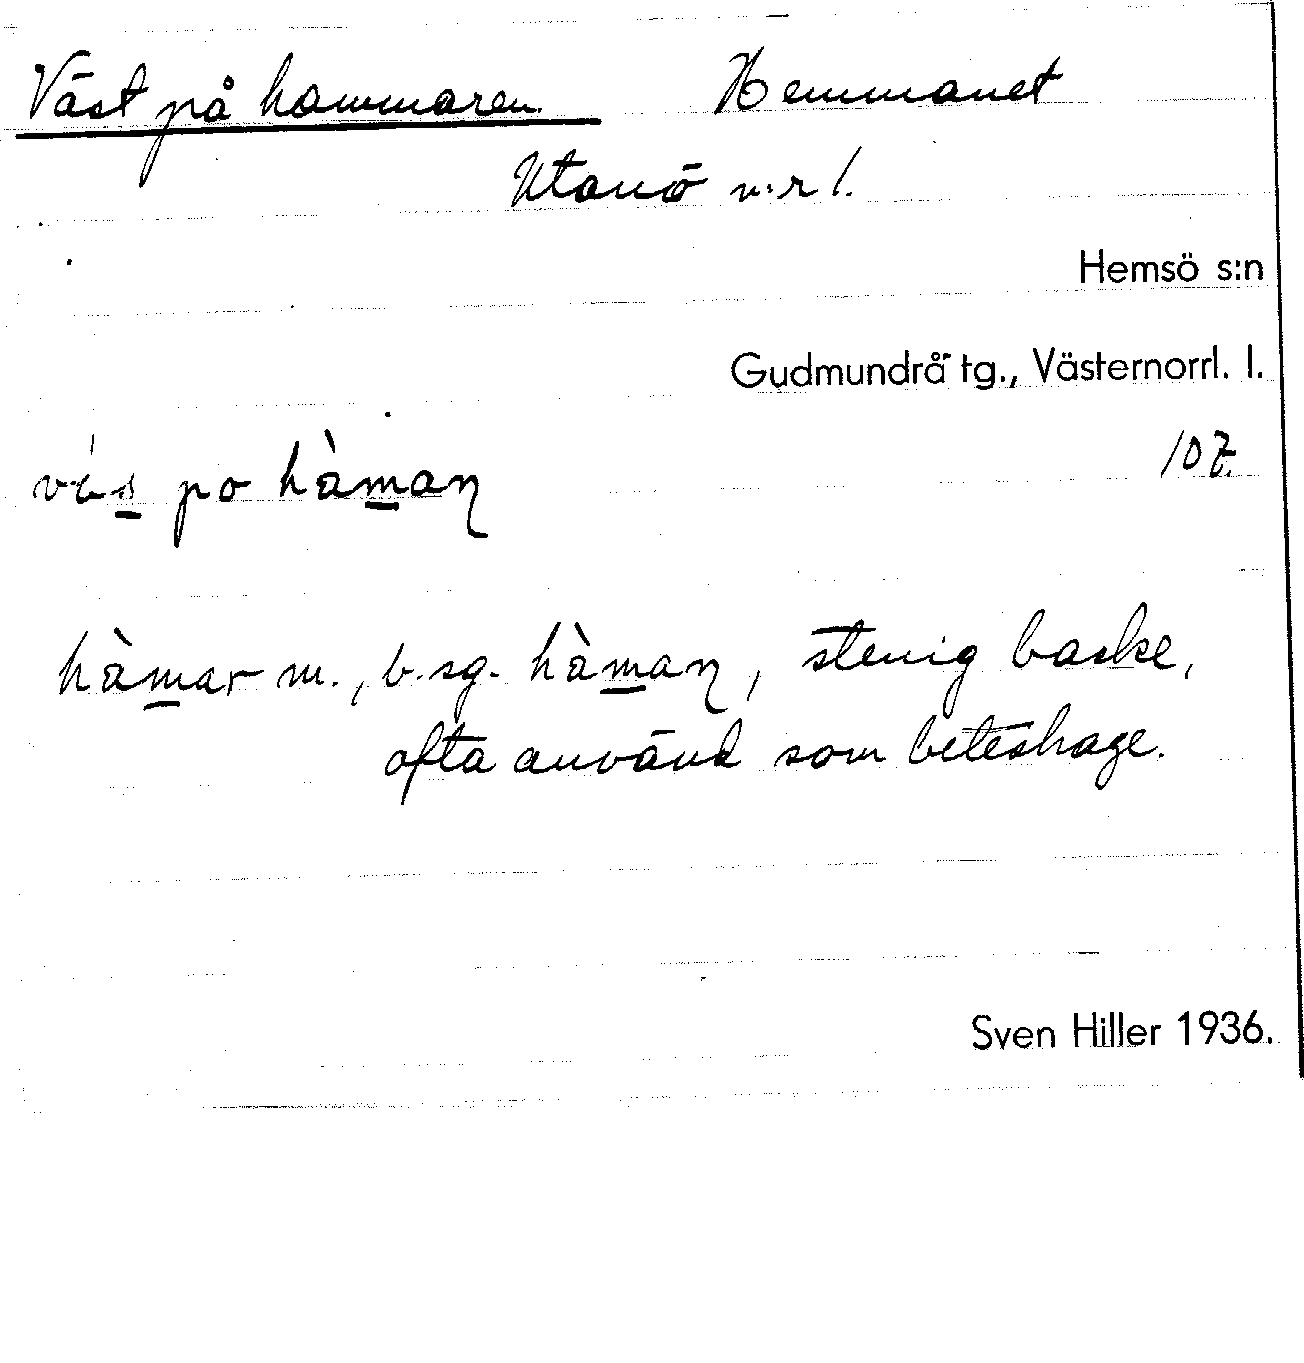 Väst på hammaren Hemmanet
Utanö n:r 1.
Hemsö s:n
Gudmundrå tg., Västernorrl. l.
vés po hàmaɳ 107.
hàmar m., b.sg. hàmaɳ, stenig backe,
ofta använd som beteshage.
Sven Hiller 1936.